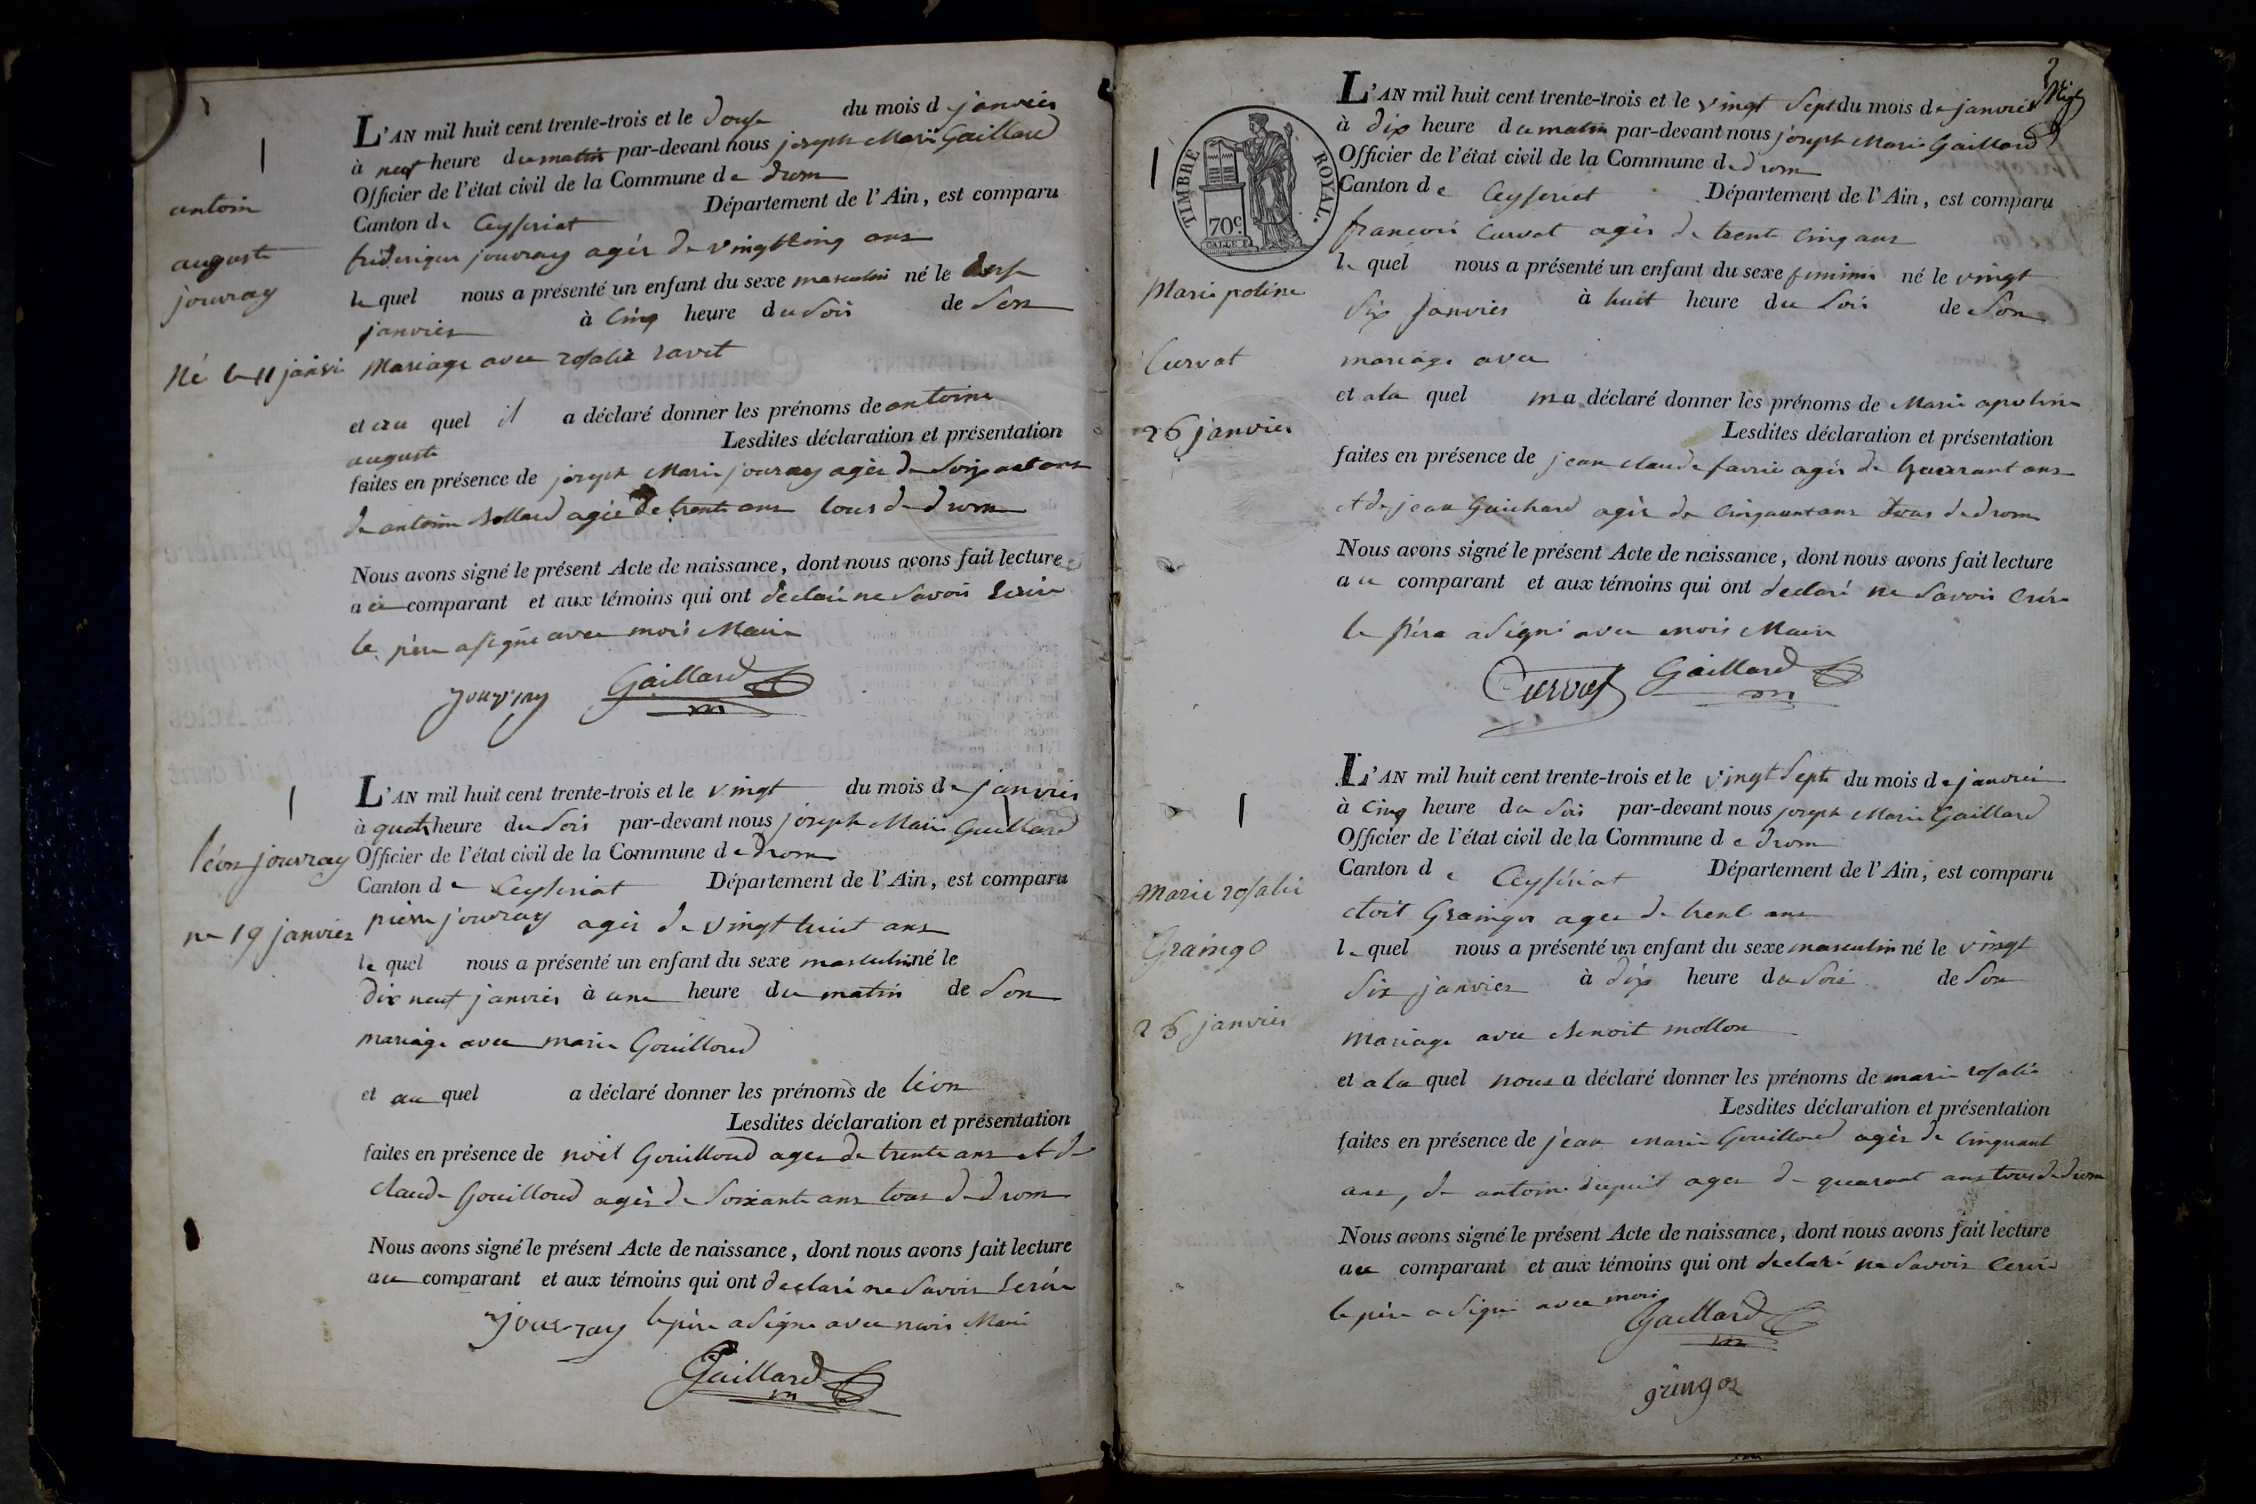 antoin
auguste
jouvray
Né le 11 janvi
L'AN mil huit cent trente-trois et le douse du mois d janvier
à neuf heure du matin par-devant nous joseph Marie Gaillard
Officier de l'état civil de la Commune de drom
Canton de Ceyseriat Département de l'Ain, est comparu
frederique jouvray agér de vingt cinq ans
le quel nous a présenté un enfant du sexe masculin né le
janvier à Cinq heure du Soir de Son
Mariage avec rosalie ravet
et au quel il a déclaré donner les prénoms de antoine
auguste Lesdites déclaration et présentation
faites en présence de joseph Marie jouvray agér de ans
de antoine agér de trente ans tous de drom
Nous avons signé le présent Acte de naissance, dont nous avons fait lecture
au comparant et aux témoins qui ont déclaré ne Savoir Ecrire
le père a signé avec mois Maire
jouvray Gaillard
léon jouvray
ne 19 janvier
L'AN mil huit cent trente-trois et le vingt du mois de janvier
à quatr heure du Soir par-devant nous joseph Marie Gaillard
Officier de l'état civil de la Commune de drom
Canton de Ceyseriat Département de l'Ain, est comparu
pierre jouvray agér de vingt huit ans
le quel nous a présenté un enfant du sexe masculin né le
dix neuf janvier à une heure du matin de Son
mariage avec marie Gouilloud
et au quel a déclaré donner les prénoms de léon
Lesdites déclaration et présentation
faites en présence de noël Gouilloud ager de trente ans et de
claude Gouilloud agér de Soixante ans tous de drom
Nous avons signé le présent Acte de naissance, dont nous avons fait lecture
au comparant et aux témoins qui ont declaré ne Savoir Ecrire
jouvray le père a Signe avec mois Maire
Gaillard
TIMBRE ROYAL.
70c
Marie poline
Curvat
26 janvier
L'AN mil huit cent trente-trois et le vingt Sept du mois de janvier
à dix heure du matin par-devant nous joseph Marie Gaillard
Officier de l'état civil de la Commune de drom
Canton de Ceyseriet Département de l'Ain, est comparu
francois Curvat agér de trente Cinq ans
le quel nous a présenté un enfant du sexe feminin né le vingt
Six Janvier à huit heure du Soir de Son
mariage avec
et a la quel a déclaré donner les prénoms de Marie apoline
Lesdites déclaration et présentation
faites en présence de jean claude favrie agér de quarant ans
et de jean Guichard agér de Cinquant ans tous de drom
Nous avons signé le présent Acte de naissance, dont nous avons fait lecture
au comparant et aux témoins qui ont declaré ne Savoir Ecrire
le père a Signé avec mois Maire
Curvat Gaillard
Marie rosalie
Graingo
26 janvier
L'AN mil huit cent trente-trois et le vingt Septe du mois de janvier
à Cinq heure du Soir par-devant nous joseph Marie Gaillard
Officier de l'état civil de la Commune de drom
Canton de Ceyseriat Département de l'Ain, est comparu
Graingor agee de trent ans
le quel nous a présenté un enfant du sexe masculin né le vingt
Six janvier à dix heure du Soir de Son
Mariage avec Benoit mollon
et a la quel nous a déclaré donner les prénoms de marie rosalie
Lesdites déclaration et présentation
faites en présence de jean Marie Gouilloud agér de Cinquant
ans, de antoine ager de quarant ans tous de drom
Nous avons signé le présent Acte de naissance, dont nous avons fait lecture
au comparant et aux témoins qui ont declaré ne Savoir Ecrire
le père a Signé avec mois
Gaillard
gringor